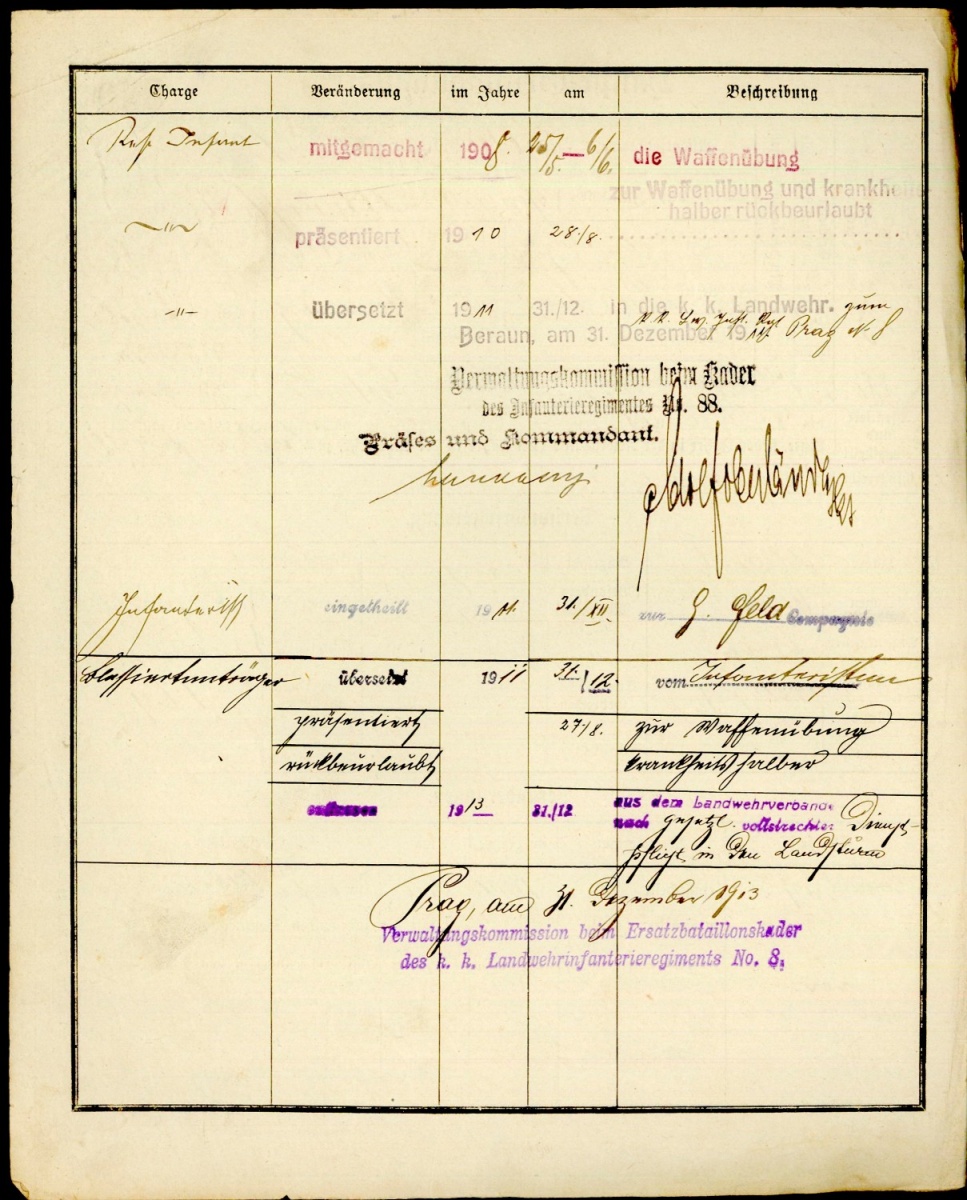 Charge Veränderung im Jahre am Beschreibung
Res. Infant mitgemacht 1908. 25/5. — 6/6. die Waffenübung
zur Waffenübung und krankheits
halber rückbeurlaubt
—"— präsentiert 1910 28./8.
—"— übersetzt 1911 31./12. in die k. k. Landwehr. zum
k. k. Lw. Inft. Rgt Prag N. 8
Beraun, am 31. Dezember 1911.
Verwaltungskommission beim Kader
des Infanterieregimentes No. 88.
Präses und Kommandant.
Infanterist eingetheilt 1911. 31./XII. zur 9. Feld Compagnie
Blessiertenträger übersetzt 1911 31./12. vom Infanteristen
präsentiert 27./8. zur Waffenübung
rückbeurlaubt krankheitshalber
entlassen 1913 31./12 aus dem Landwehrverbande
nach gesetzl. vollstreckter Dienst-
pflicht in den Landsturm
Prag, am 31. Dezember 1913
Verwaltungskommission beim Ersatzbataillonskader
des k. k. Landwehrinfanterieregiments No. 8.